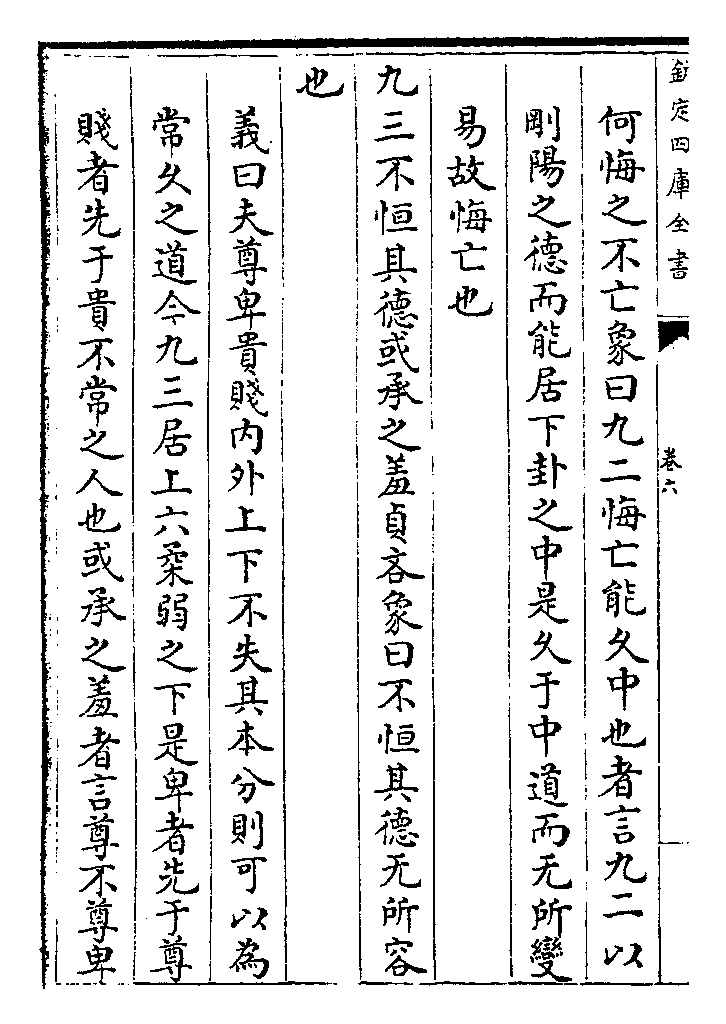 欽定四庫全書
卷六
何悔之不亡象曰九二悔亡能久中也者言九二以
剛陽之德而能居下卦之中是久于中道而无所變
易故悔亡也
九三不恒其德或承之羞貞吝象曰不恒其德无所容
也
義曰夫尊卑貴賤内外上下不失其本分則可以為
常久之道今九三居上六柔弱之下是卑者先于尊
賤者先于貴不常之人也或承之羞者言尊不尊卑